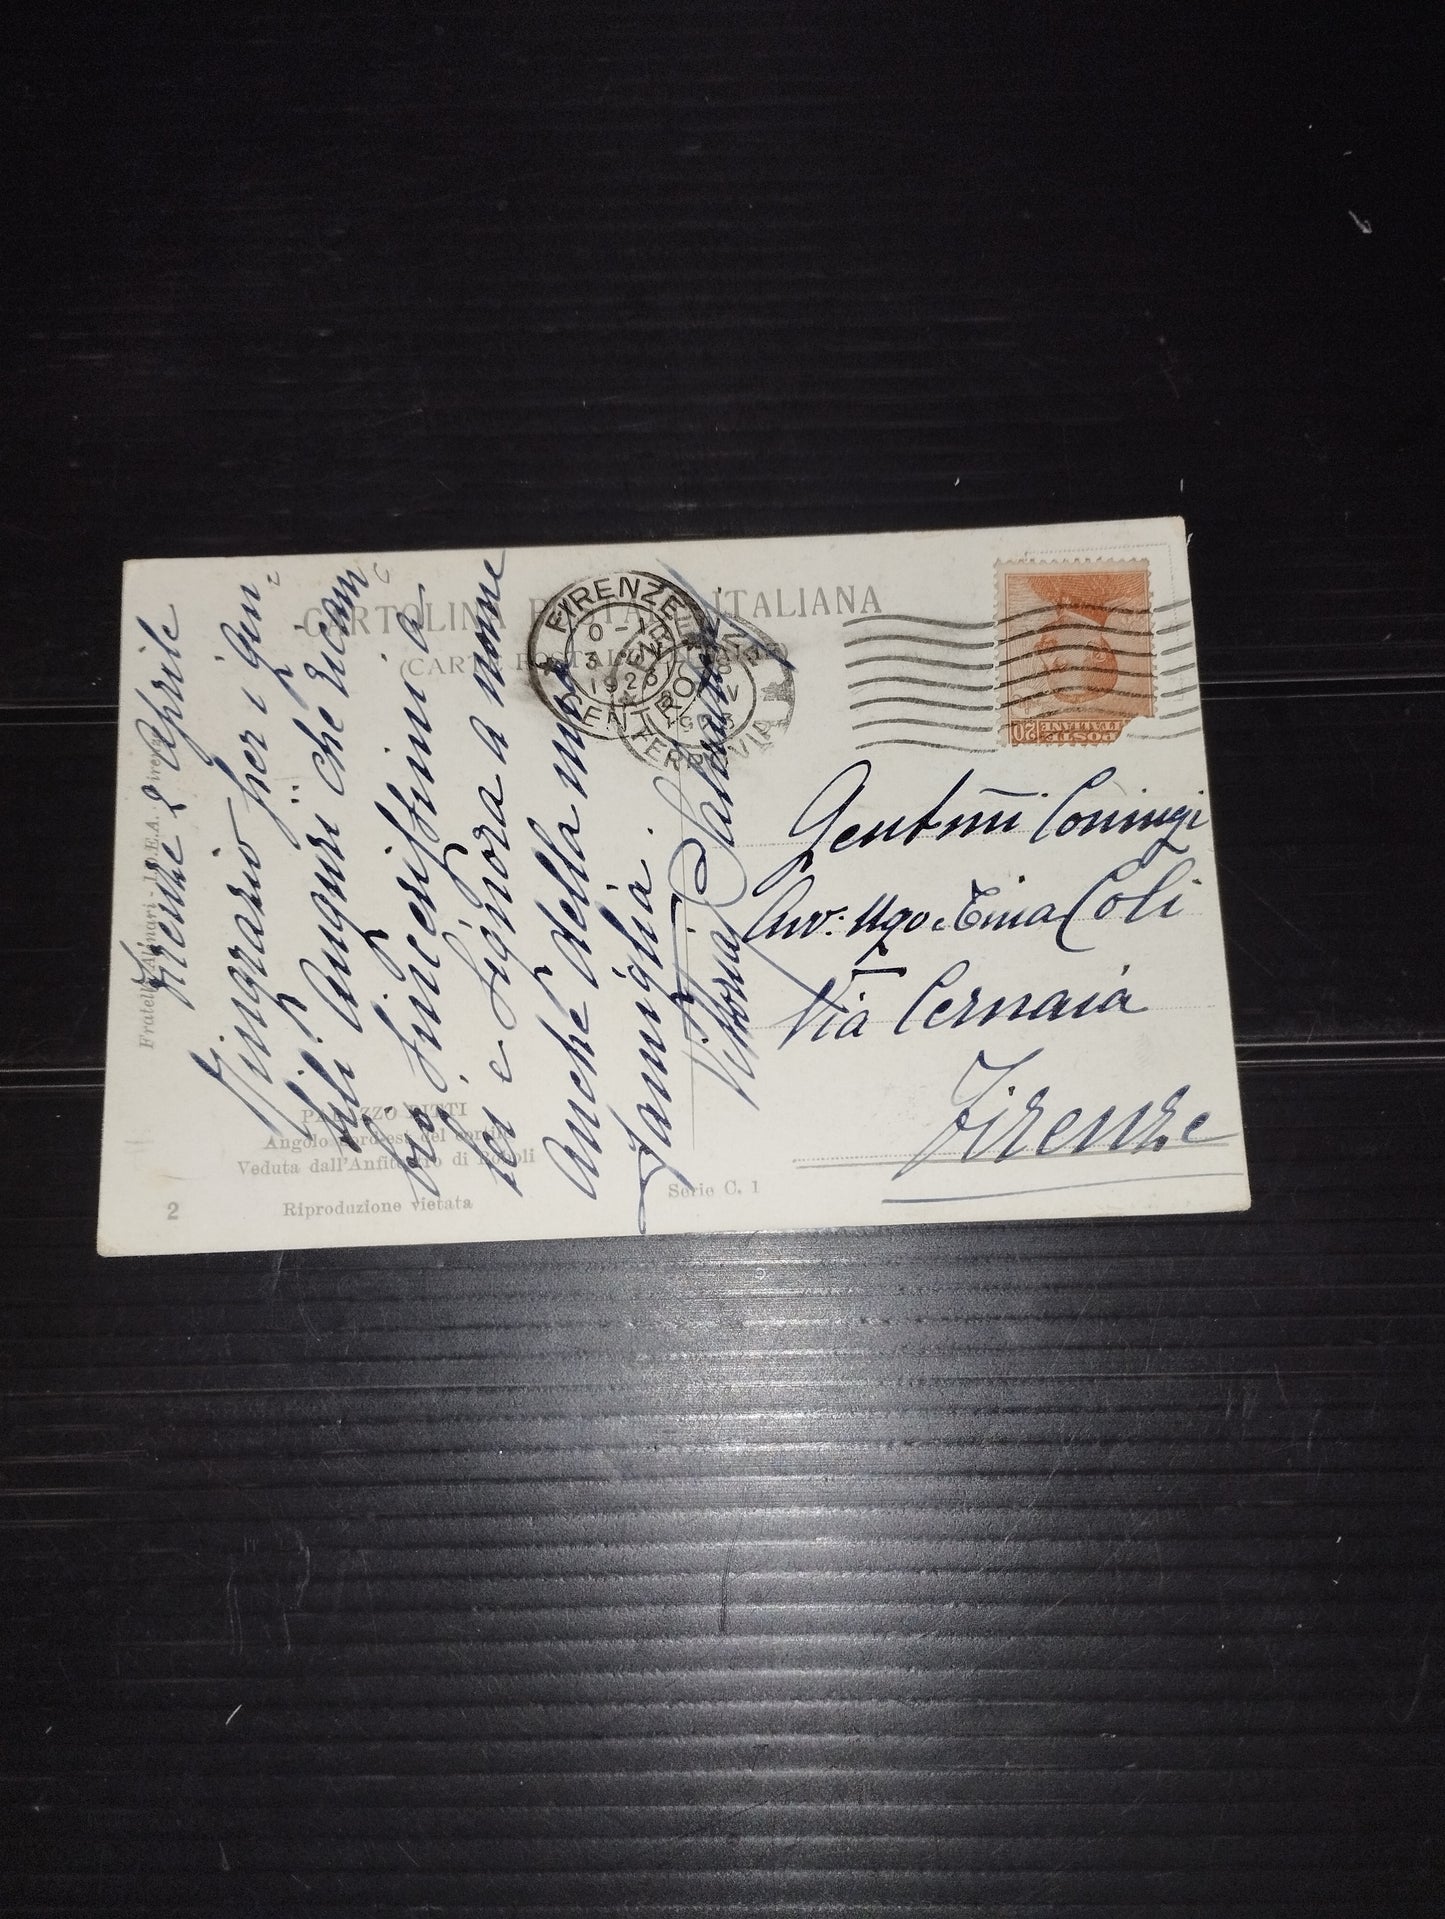 CARTOLINA POSTALE ITALIANA
(CARTE POSTALE
FIRENZE
1926
CENTRO
FERROVIA
POSTE ITALIANE
20
Firenze 2 Aprile
Ringrazio per i gen-
tili Auguri che ricam
bio sincerissimi a
lei e Signora a nome
anche della mia
famiglia.
Vittoria
Gentmi Coniugi
Avv. Ugo e Tina Coli
Via Cernaia
Firenze
Fratelli Alinari - I.D.E.A. Firenze
PALAZZO PITTI
Angolo Nord-est del cortile
Veduta dall'Anfiteatro di Boboli
2
Riproduzione vietata
Serie C. 1